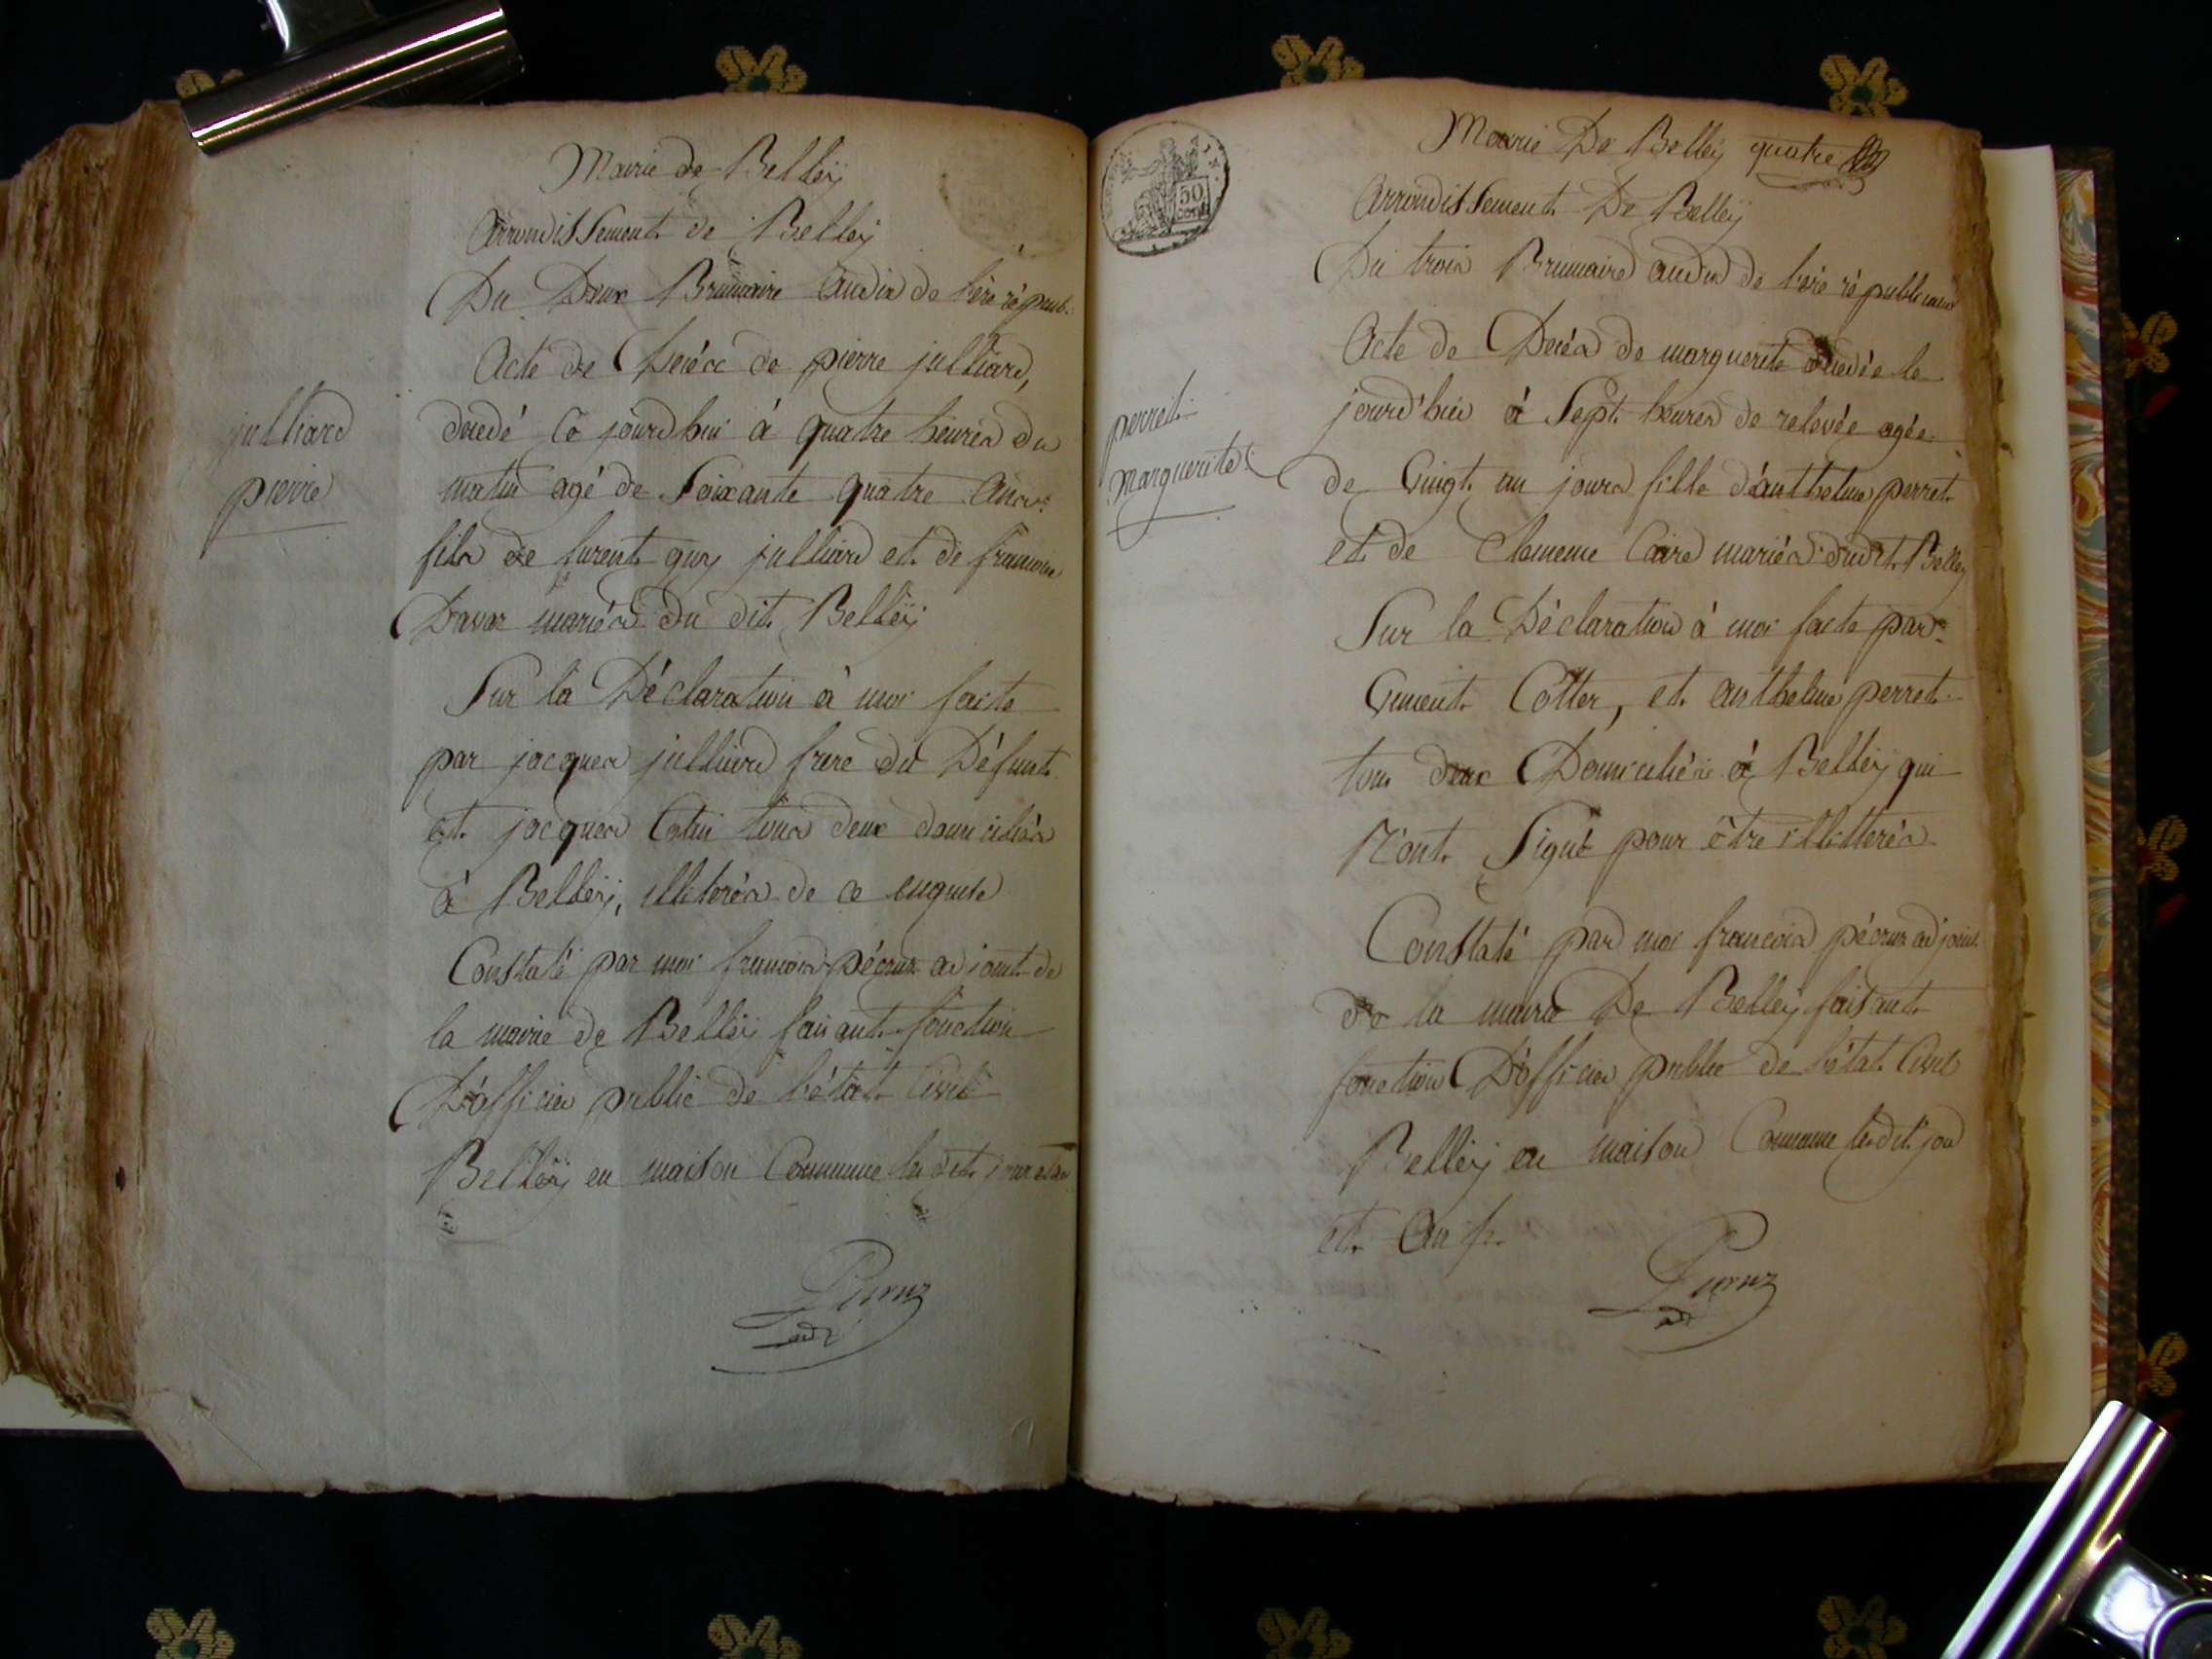 Mairie de Belleÿ
Arrondissement de Belleÿ
Du Deux Brumaire an dix de l'ère répub.
Acte de Décés de pierre julliard,
julliard
pierre
décédé Ce jourd'hui à quatre heures du
matin agé de Soixante quatre Ans
fils de furent guy julliard et de francoise
Davar mariés du dit Belleÿ
Sur la Déclaration à moi faite
par jacques julliard frere du Défunt
et jacques tous deux domiciliés
à Belleÿ, illeterés de ce enquis
Constaté par moi francois pécruz adjoint de
la mairie de Belleÿ faisant fonction
D'officier public de l'état Civil
Belleÿ en maison Commune les dit jour et an
Pecruz
adj
Mairie De Belleÿ quatre
Arrondissement De Belleÿ
Du trois Brumaire an dix de l'ère républicaine
Acte de Décés de marguerite décédée le
perret
marguerite
jourd'hui à Sept heures de relevée agée
de Vingt un jours fille d'anthelme perret
et de Clemence Caire mariés dudit Belley
Sur la Déclaration à moi faite par
Vincent Cotter, et anthelme perret
tous deux Domiciliés à Belleÿ qui
N'ont Signé pour être illitterés
Constaté par moi francois pécruz adjoint
de la mairie De Belleÿ faisant
fonction D'officier public de l'état Civil
Belleÿ en maison Commune les dit jour
et An
Pecruz
adj
50